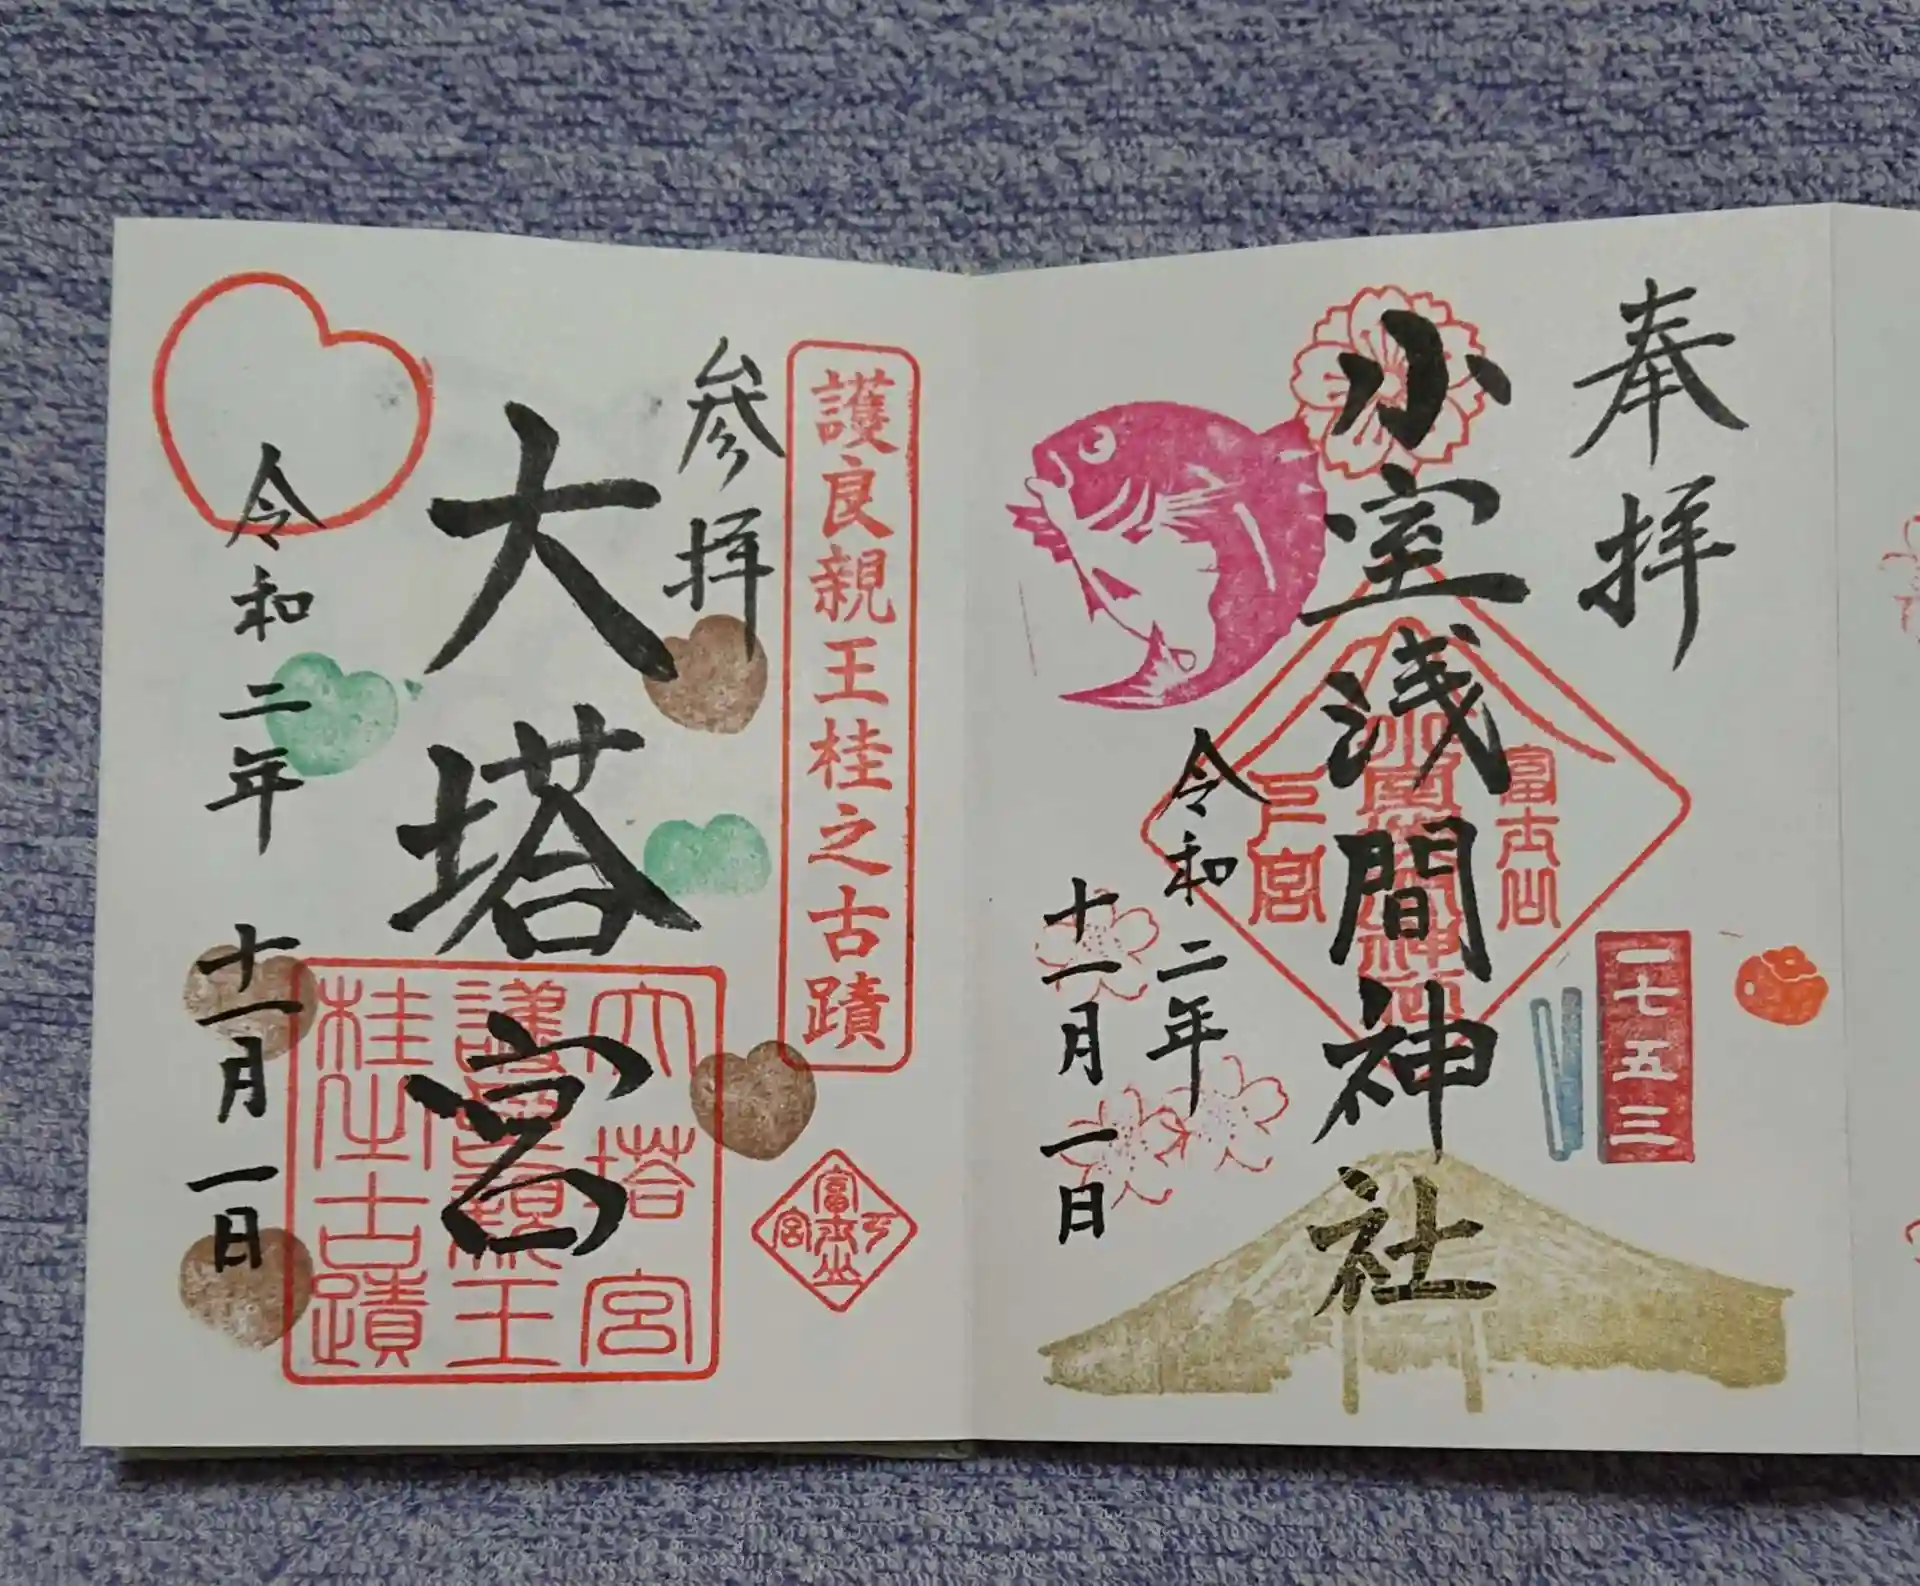 奉拝
小室浅間神社
富士山
三宮
令和二年
十一月一日
七五三
護良親王桂之古蹟
参拝
大塔宮
大塔宮
護良親王
桂山古蹟
令和二年
十一月一日
富士山
宮